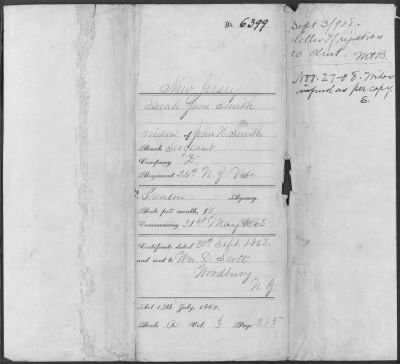 No. 6399
New Jersey
Sarah Jane Smith
widow of John H. Smith
Rank Sergeant
Company
Regiment 24th N. J. Vols
Trenton Agency.
Rate per month, $8
Commencing 31st May 1863
Certificate dated 30th Sept. 1863.
and sent to Wm D. Scott
Woodbury
N. J.
Act 14th July, 1862.
Book A Vol. 1 Page
Sept 3/908.
Letter of rejection
to clmt.
Nov. 27-08. Widow
informed as per copy